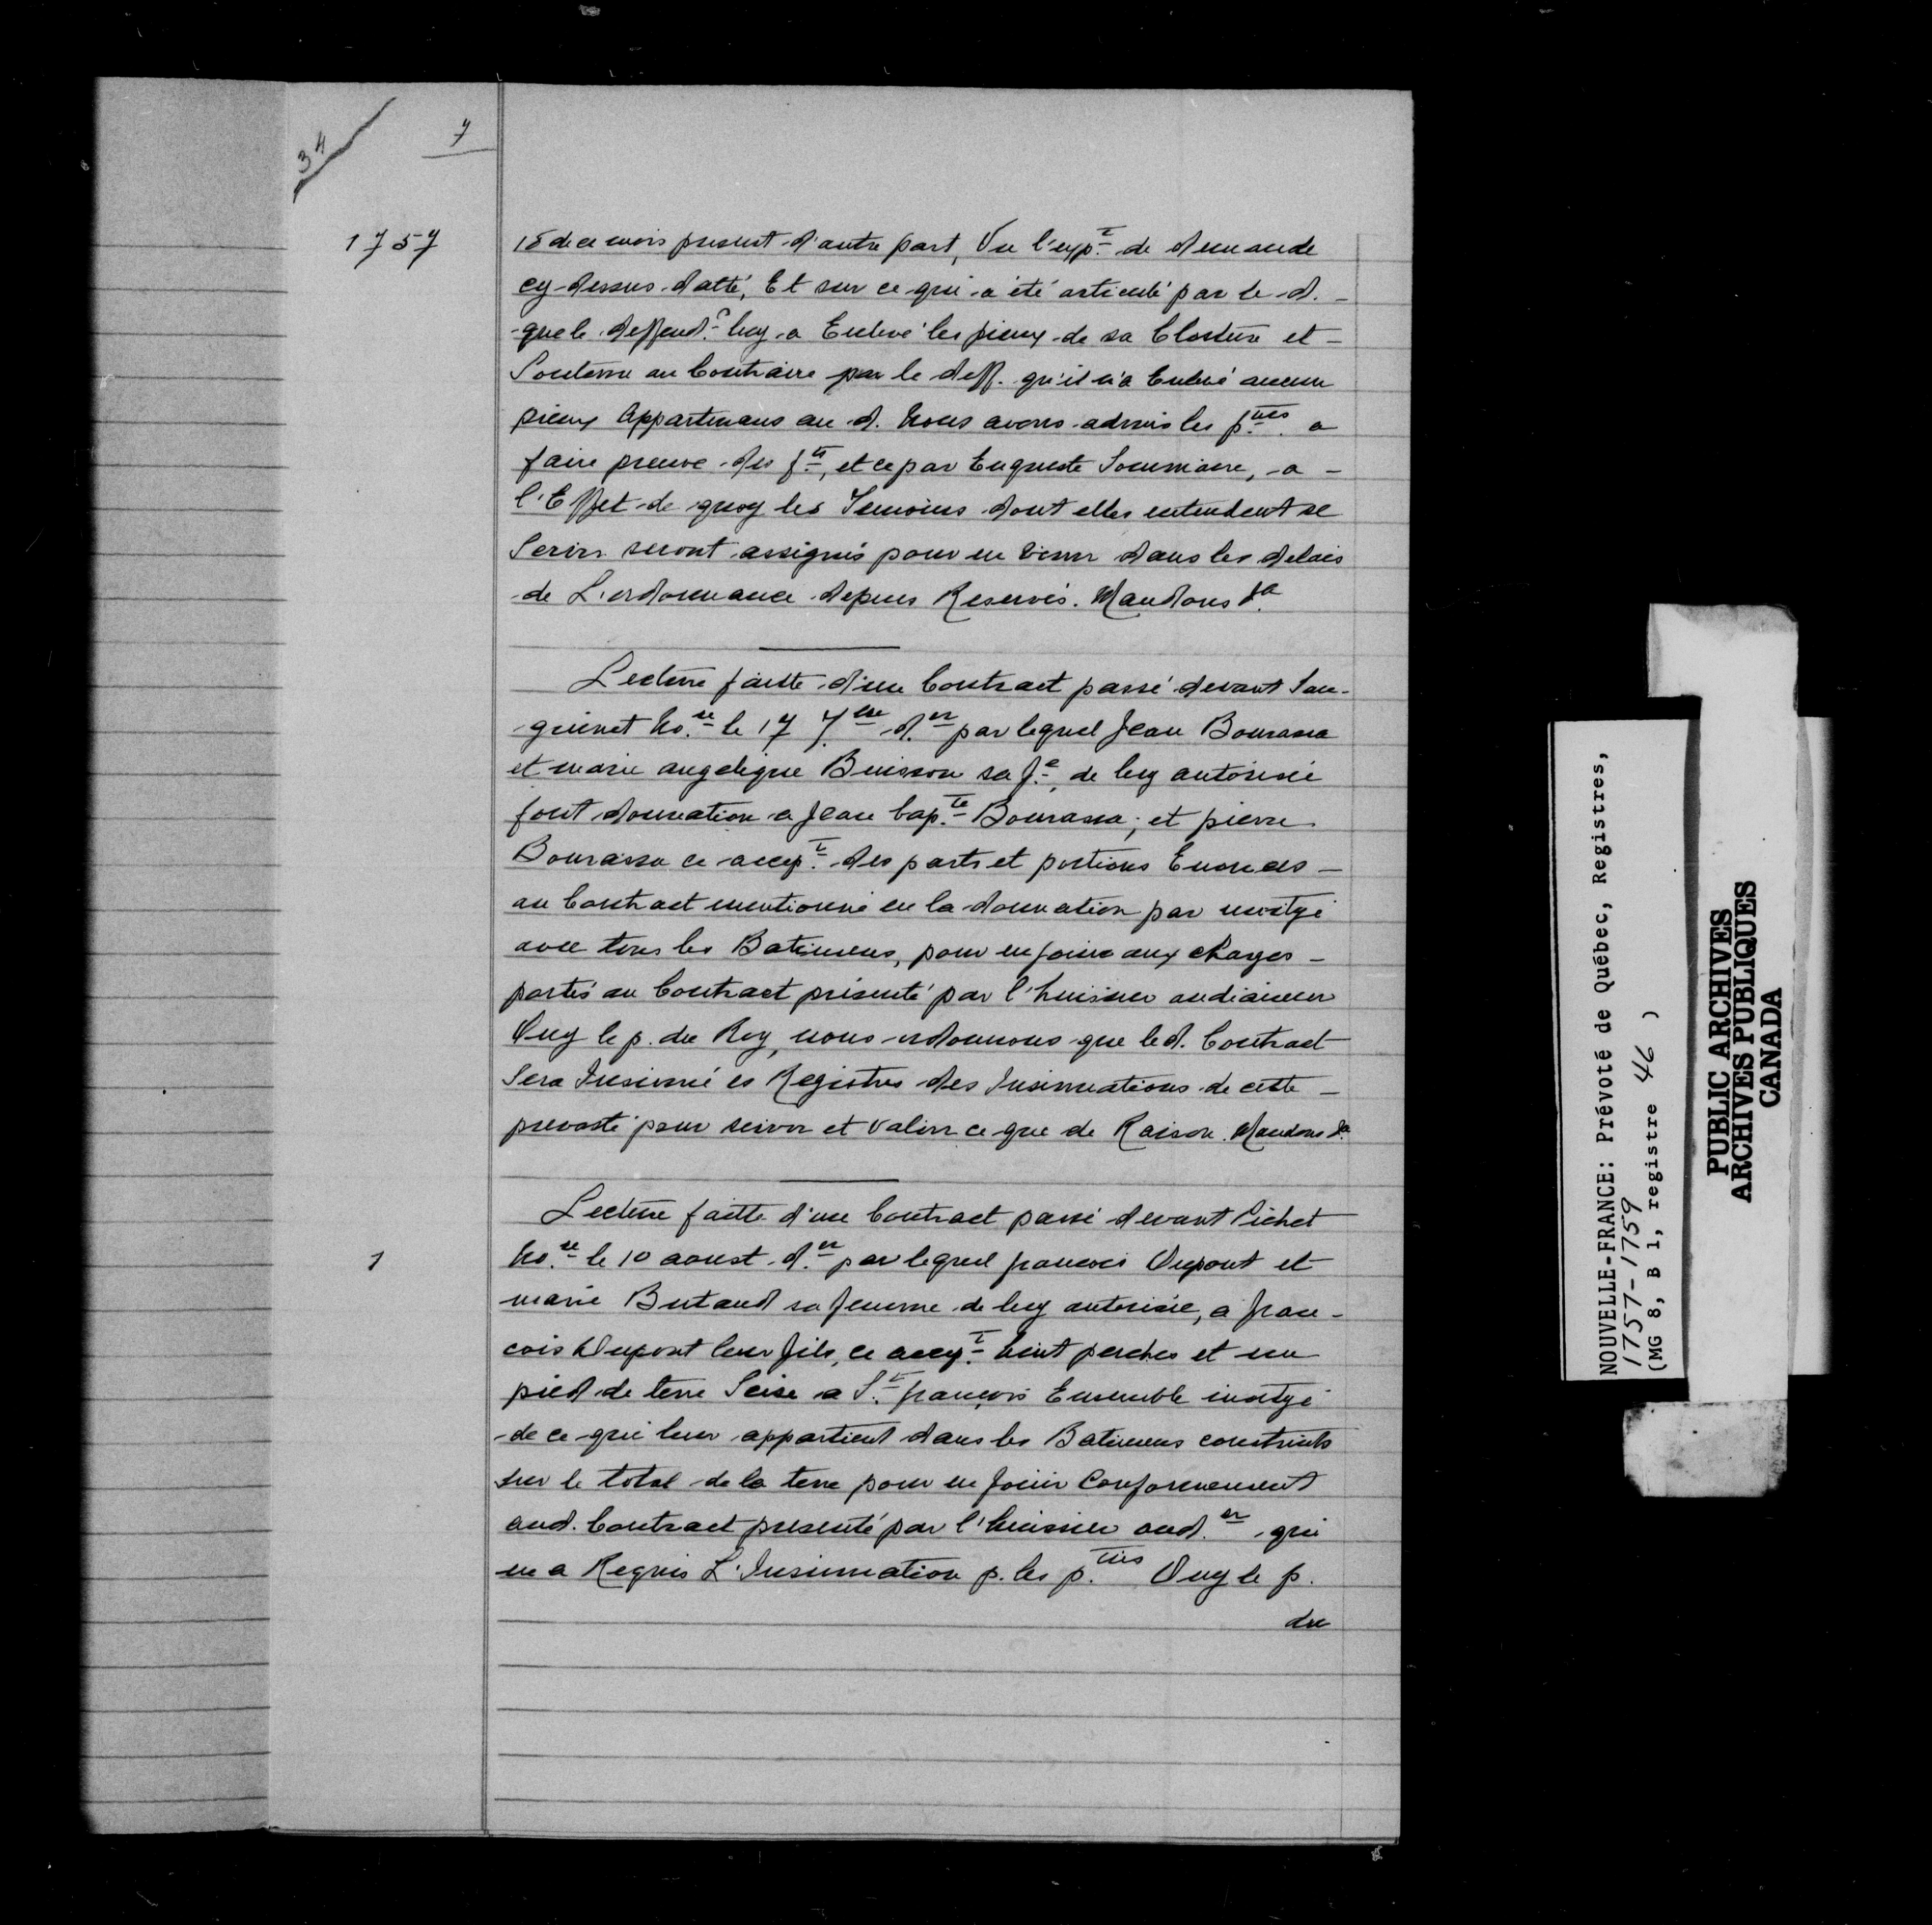 34
7
1757
15 de ce mois present d'autre part, Vu l'exp.t de demande
cy-dessus datté, Et sur ce qui a été articulé par le d. -
que le deffend.r luy a Enlevé les pieux de sa Closture et -
Soutenu au Contraire par le deff. qu'il n'a Enlevé aucun
pieux Appartenans au d. Nous avons admis les p.ties a
faire preuve des f.ts, et ce par Enqueste Sommaire, a -
l'Effet de quoy les Temoins dont elles entendent se
Servir seront assignés pour en venir dans les delais
de L'ordonnance depens Reservés. Mandons &a
Lecture faitte d'un Contract passé devant San-
guinet No.re le 17 7.bre d.er par lequel Jean Bourassa
et marie angelique Buisson sa f.e, de luy autorisée
font donnation a Jean bap.te Bourassa; et pierre
Bourassa ce accep.t des parts et portions Enoncés -
au Contract mentionné en la donnation par moitgé
avec tous les Batimens, pour en jouir aux charges -
portés au Contract présenté par l'huissier audiancier
Ouy le p. du Roy, nous ordonnons que led. Contract
Sera Insinué es Registres des Insinuations de cette -
prevosté pour servir et valoir ce que de Raison. Mandons &a
Lecture faitte d'un Contract passé devant Pichet
1
No.re le 10 aoust d.er par lequel francois Dupont et
marie Butaud sa femme de luy autorisée, a fran-
cois Dupont leur fils, ce accep.t huit perches et un
pied de terre Seise a S.t françois Ensemble moitgé
de ce qui leur appartient dans les Batimens construits
sur le total de la terre pour en jouir Conformement
aud. Contract presenté par l'huissier aud.er qui
en a Requis L'Insinuation p. les p.ties Ouy le p.
du
NOUVELLE-FRANCE: Prévoté de Québec, Registres,
1757-1759
(MG 8, B 1, registre 46 )
PUBLIC ARCHIVES
ARCHIVES PUBLIQUES
CANADA